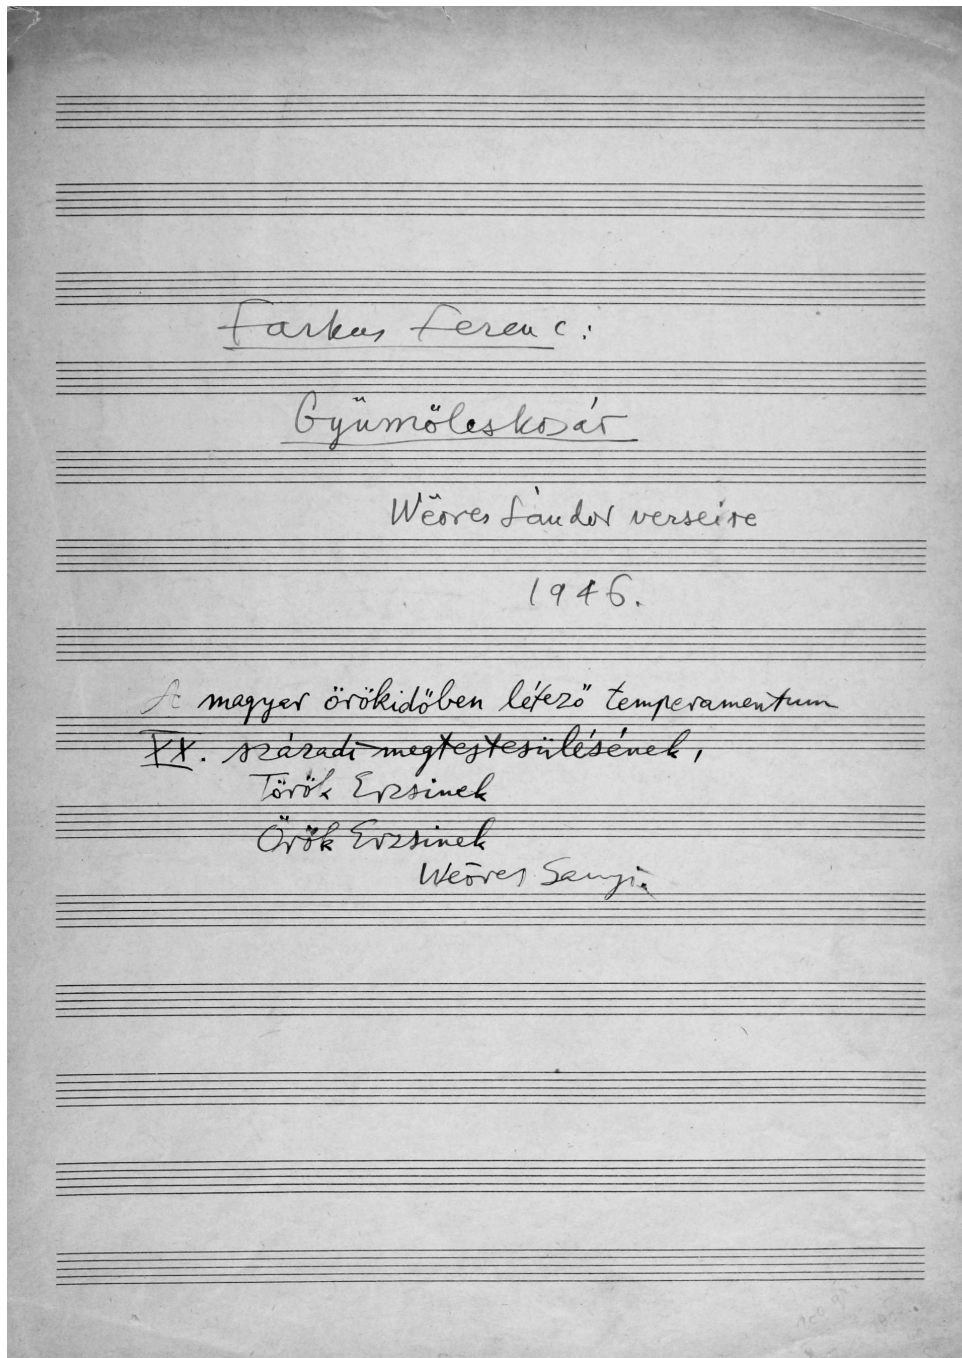 Farkas Ferenc:
Gyümölcskosár
Weöres Sándor verseire
1946.
A magyar örökidőben létező temperamentum
XX. századi megtestesülésének,
Török Erzsinek
Örök Erzsinek
Weöres Sanyi.